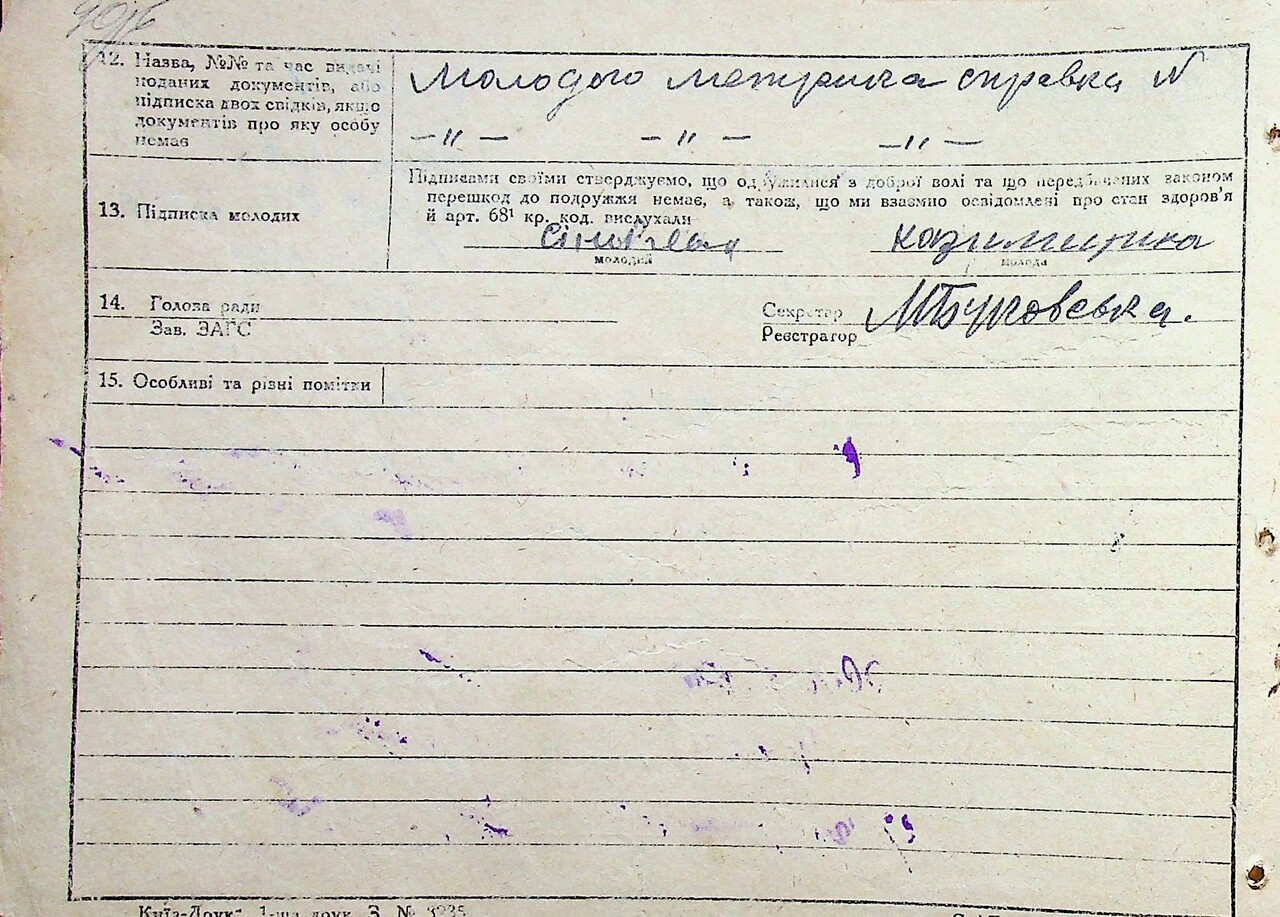 12. Назва, №№ та час видачі
поданих документів, або
підписка двох свідків, якщо
документів про яку особу
немає
Молодого метрична справка N
—"— —"— —"—
13. Підписка молодих
Підписами своїми стверджуємо, що одружилися з доброї волі та що передбачених законом
перешкод до подружжя немає, а також, що ми взаємно освідомлені про стан здоров'я
й арт. 68¹ кр. код. вислухали
молодий
молода
14. Голова ради
Зав. ЗАГС
Секретар
Реєстратор
15. Особливі та різні помітки
Київ-Друк. 1-ша друк. З. № 3235